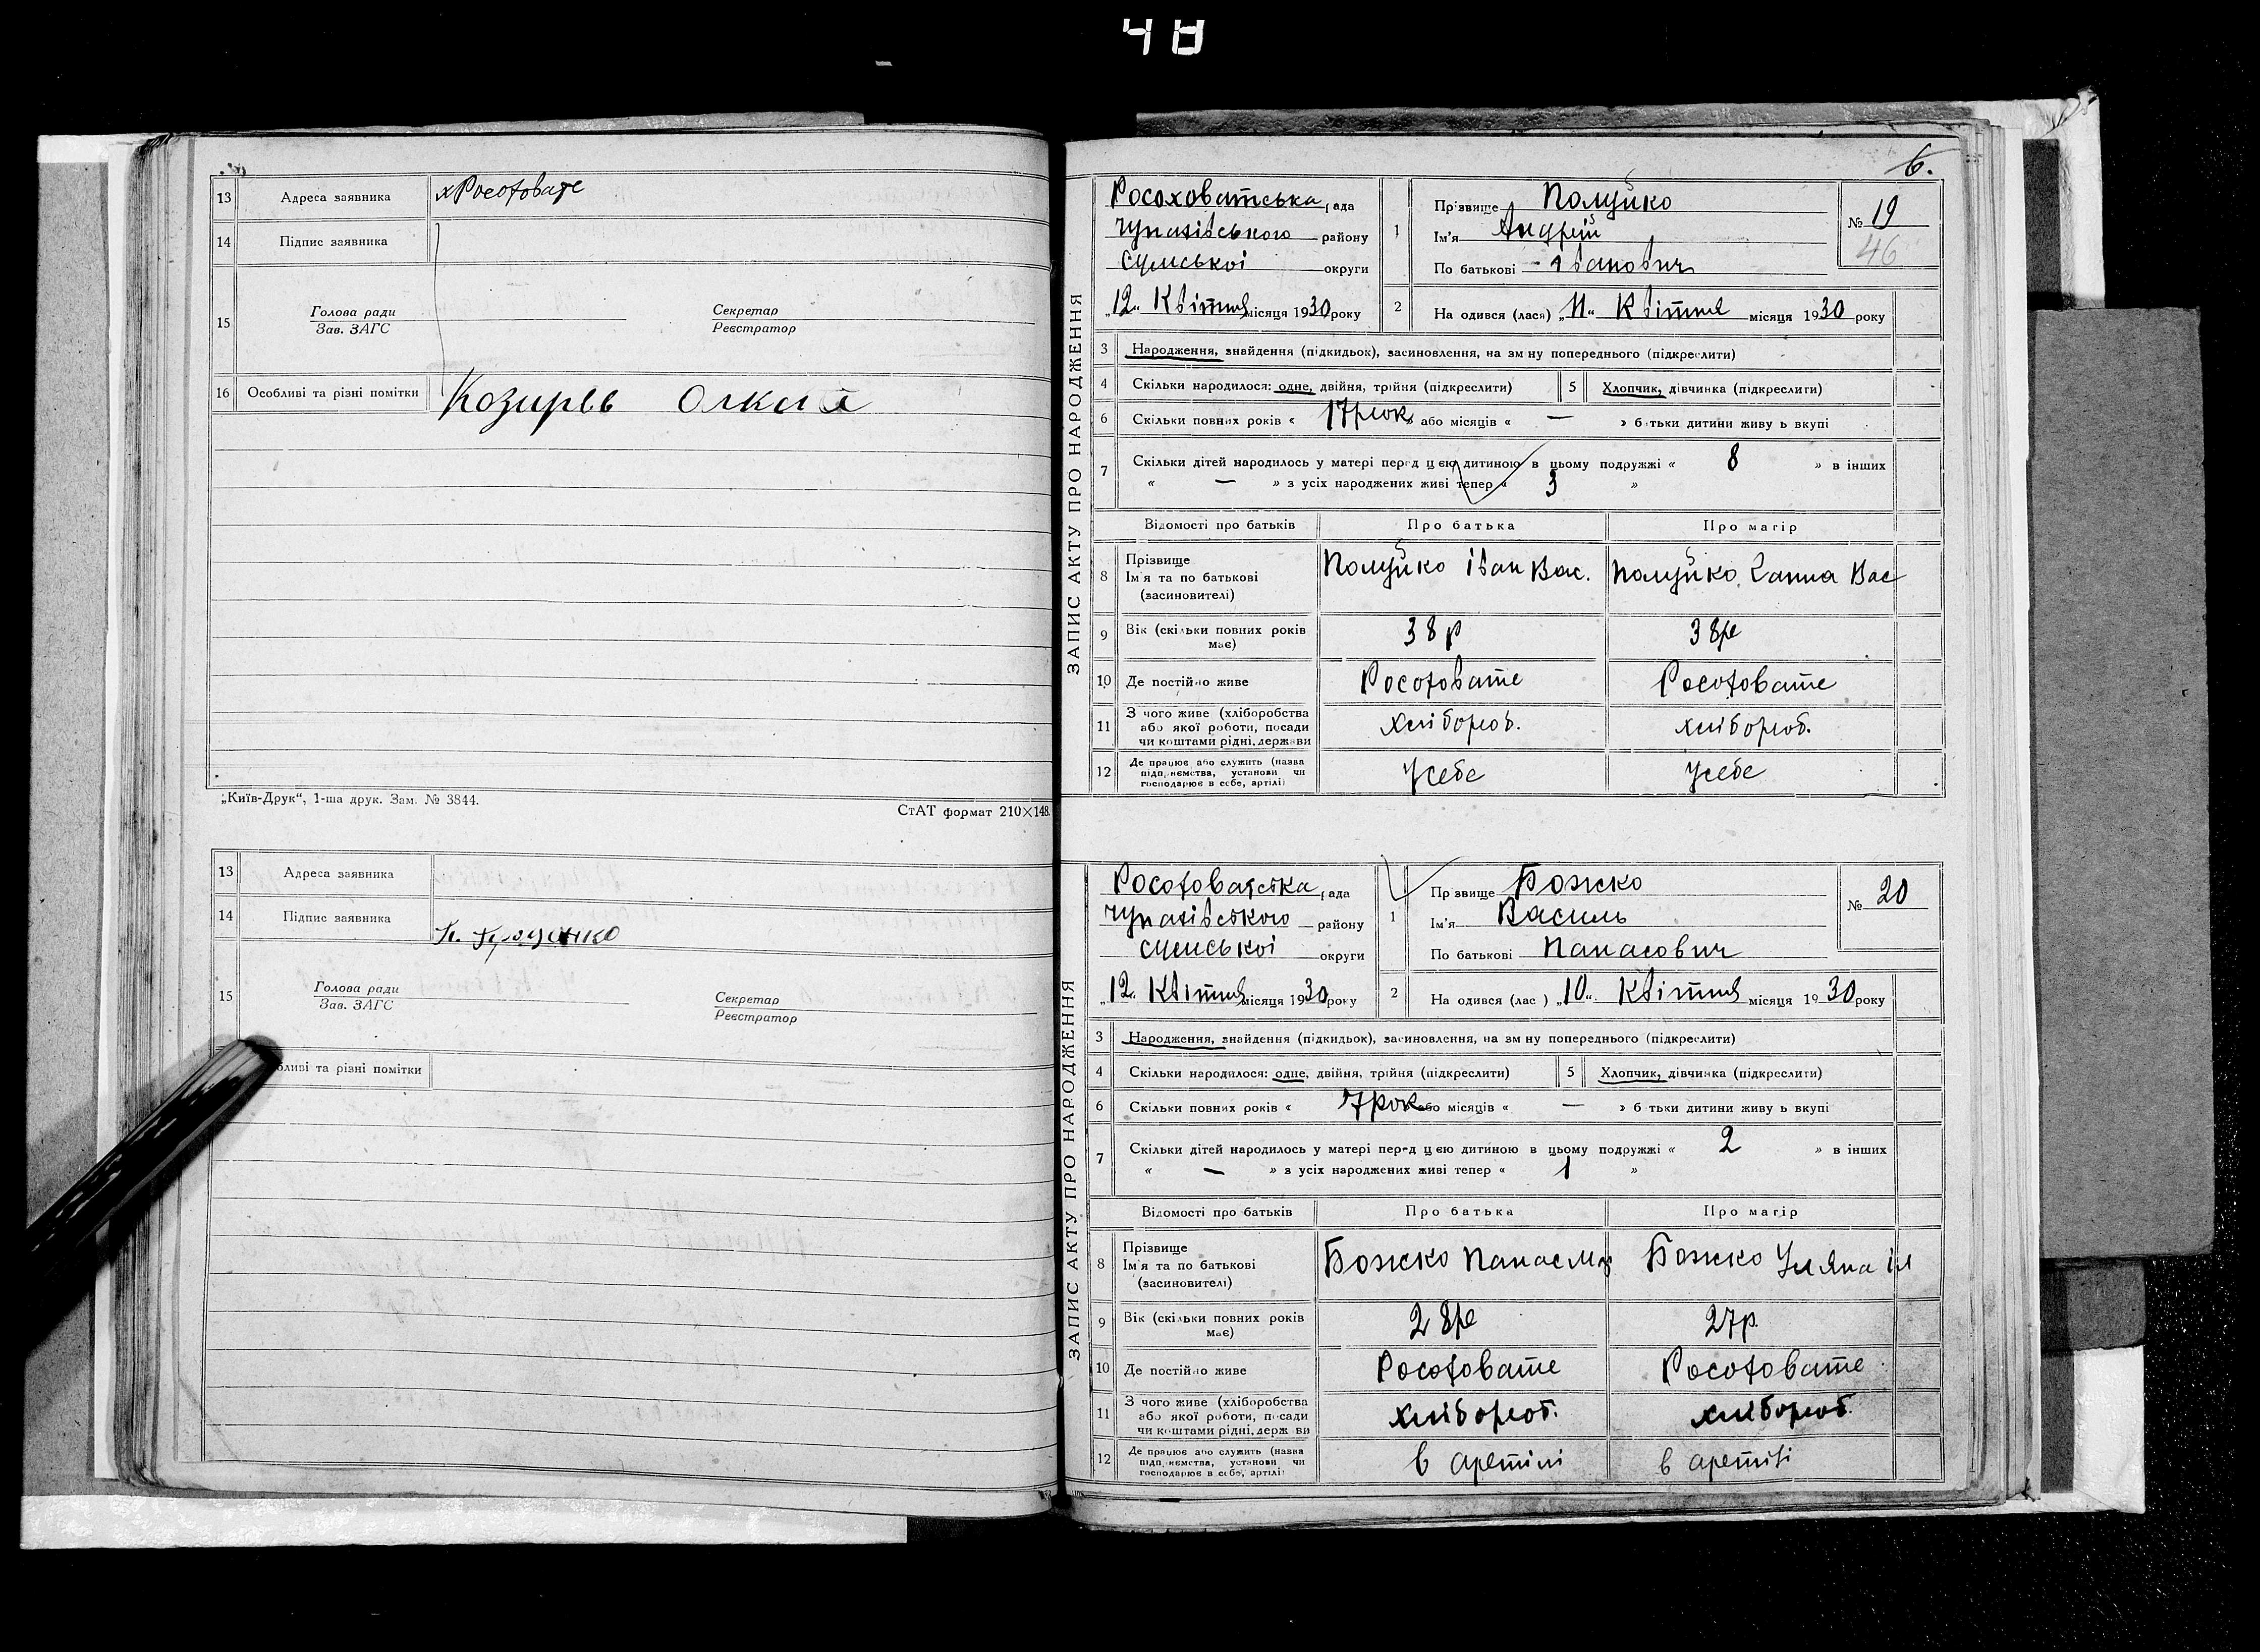 48
13 Адреса заявника х Росоховате
14 Підпис заявника
15 Голова ради
Зав. ЗАГС
Секретар
Реєстратор
16 Особливі та різні помітки Козирів
„Київ-Друк“, 1-ша друк. Зам. № 3844.
СтАТ формат 210×148.
13 Адреса заявника
14 Підпис заявника
15 Голова ради
Зав. ЗАГС
Секретар
Реєстратор
бливі та різні помітки
6.
ЗАПИС АКТУ ПРО НАРОДЖЕННЯ
Росоховатська рада
району
Сумської округи
„12“ Квітня місяця 1930 року
1 Прізвище Полуйко
Ім'я Андрій
По батькові Іванович
№ 19
46
2 На одився (лася) „11“ Квітня місяця 1930 року
3 Народження, знайдення (підкидьок), засиновлення, на зм ну попереднього (підкреслити)
4 Скільки народилося: одне, двійня, трійня (підкреслити) 5 Хлопчик, дівчинка (підкреслити)
6 Скільки повних років « 17 рок » або місяців « — » б тьки дитини живу ь вкупі
7 Скільки дітей народилось у матері перед цею дитиною в цьому подружжі « 8 » в інших
« — » з усіх народжених живі тепер « 3 »
Відомості про батьків Про батька Про матір
8 Прізвище
Ім'я та по батькові
(засиновителі)
Полуйко Іван Вас. Полуйко Ганна Вас
9 Вік (скільки повних років
має)
38 р 38 р
10 Де постійно живе Росоховате Росоховате
11 З чого живе (хліборобства
або якої роботи, посади
чи коштами рідні, держави
хлібороб. хлібороб.
12 Де працює або служить (назва
підприємства, установи чи
господарює в себе, артілі)
У себе У себе
ЗАПИС АКТУ ПРО НАРОДЖЕННЯ
Росоховатська рада
району
Сумської округи
„12“ Квітня місяця 1930 року
1 Прізвище Божко
Ім'я Василь
По батькові Панасович
№ 20
2 На одився (лас ) „10“ Квітня місяця 1930 року
3 Народження, знайдення (підкидьок), засиновлення, на зм ну попереднього (підкреслити)
4 Скільки народилося: одне, двійня, трійня (підкреслити) 5 Хлопчик, дівчинка (підкреслити)
6 Скільки повних років « 7 рок або місяців « — » б тьки дитини живу ь вкупі
7 Скільки дітей народилось у матері перед цею дитиною в цьому подружжі « 2 » в інших
« — » з усіх народжених живі тепер « 1 »
Відомості про батьків Про батька Про матір
8 Прізвище
Ім'я та по батькові
(засиновителі)
Божко Панас Божко Уляна Іл
9 Вік (скільки повних років
має)
28 р 27 р.
10 Де постійно живе Росоховате Росоховате
11 З чого живе (хліборобства
або якої роботи, посади
чи коштами рідні, держ ви
хлібороб. хлібороб.
12 Де працює або служить (назва
підприємства, установи чи
господарює в себе, артілі)
в артілі в артілі